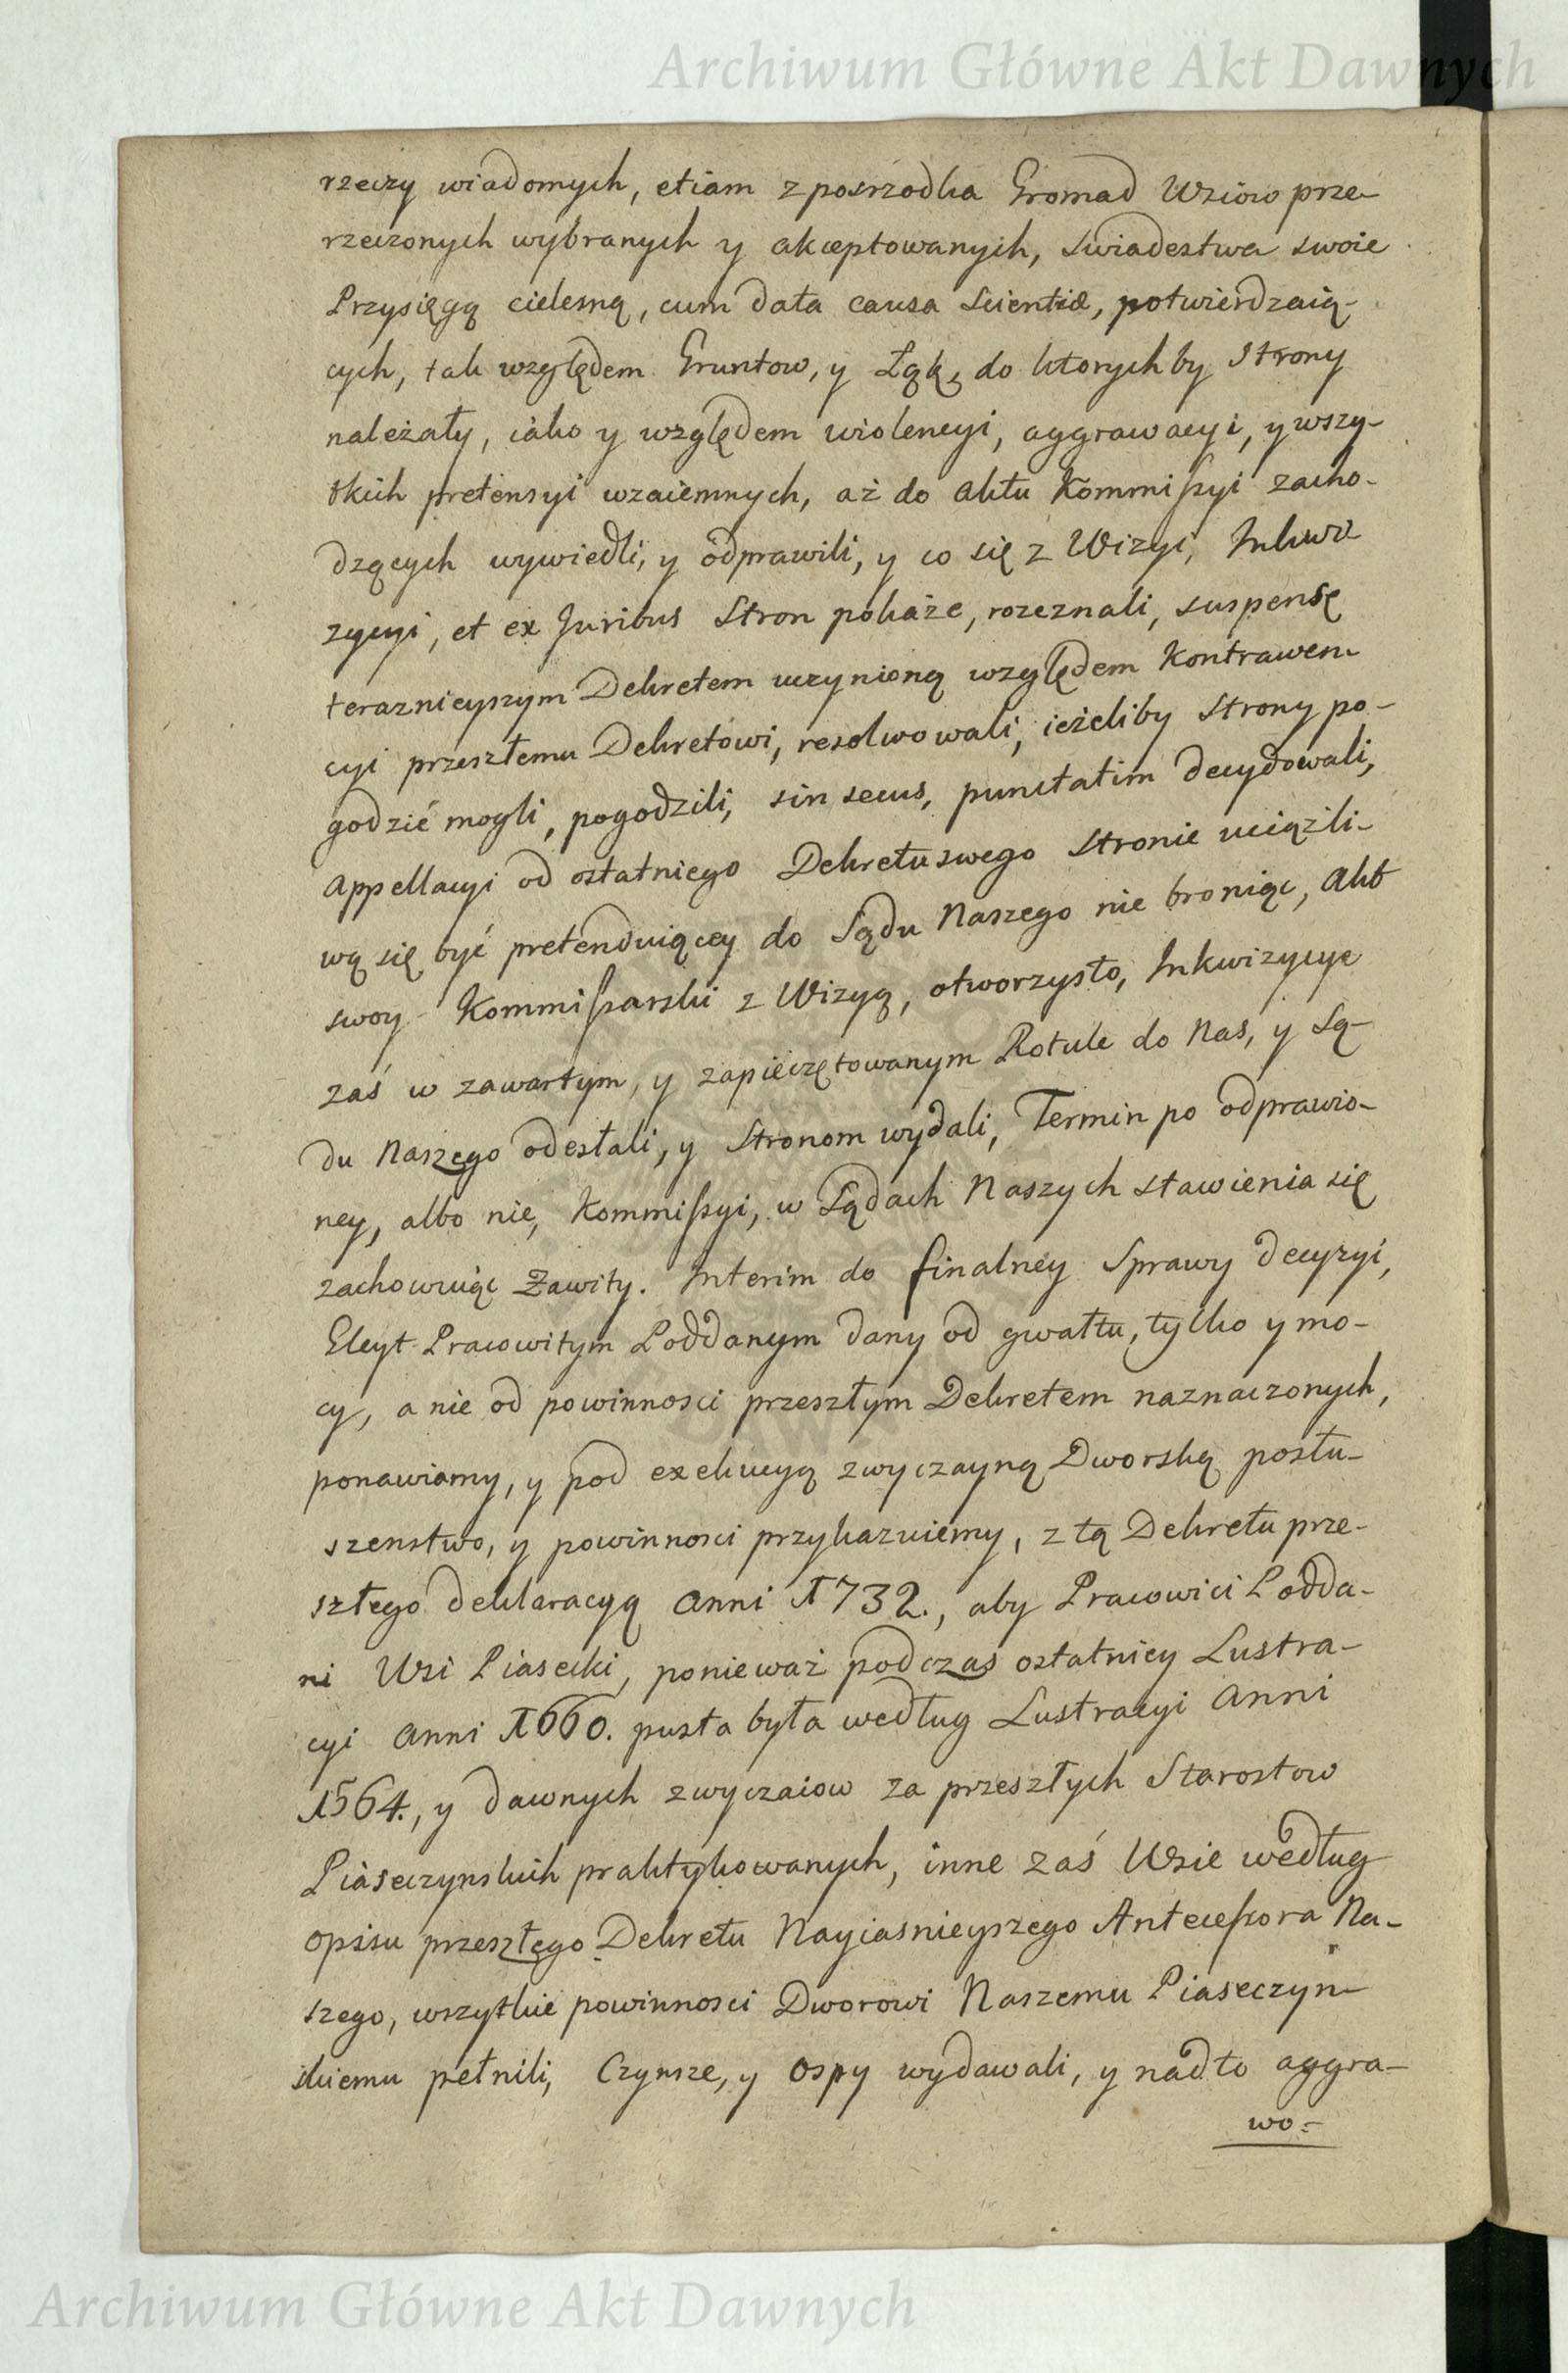 Archiwum Główne Akt Dawnych
rzeczy wiadomych, etiam z posrzodka Gromad Wsiow prze-
rzeczonych wybranych y akceptowanych, swiadestwa swoie
Przysięgą cielesną, cum data causa scientiæ, potwierdzaią-
cych, tak względem Gruntow, y Łąk, do ktorych by Strony
należały, iako y względem wiolencyi, aggrawacyi, y wszy-
tkich pretensyi wzaiemnych, aż do aktu Kommiſsyi zacho-
dzących wywiedli, y odprawili, y co się z Wizyi, Inkwi
zycyi, et ex Juribus Stron pokaże, rozeznali, suspensę
teraznieyszym Dekretem uczynioną względem Kontrawen
cyi przeszłemu Dekretowi, resolwowali, ieżeliby Strony po-
godzić mogli, pogodzili, sin secus, punctatim decydowali,
Appellacyi od ostatniego Dekretu swego Stronie uciązli-
wą się być pretenduiącey do Sądu Naszego nie broniąc, Akt
swoy Kommiſsarski z Wizyą, otworzysto, Inkwizycye
zaś w zawartym, y zapieczętowanym Rotule do Nas, y Są-
du Naszego odesłali, y Stronom wydali, Termin po odprawio-
ney, albo nie, Kommiſsyi, w Sądach Naszych stawienia się
zachowuiąc Zawity. Interim do finalney Sprawy decyzyi,
Gleyt Pracowitym Poddanym dany od gwałtu, tylko y mo-
cy, a nie od powinnosci przeszłym Dekretem naznaczonych,
ponawiamy, y pod exekucyą zwyczayną Dworską posłu-
szenstwo, y powinnosci przykazuiemy, z tą Dekretu prze-
szłego deklaracyą Anni 1732., aby Pracowici Podda-
ni Wsi Piasecki, ponieważ podczas ostatniey Lustra-
cyi Anni 1660. pusta była według Lustracyi Anni
1564., y dawnych zwyczaiow za przeszłych Starostow
Piaseczynskich praktykowanych, inne zaś Wsie według
opisu przeszłego Dekretu Nayiasnieyszego Anteceſsora Na-
szego, wszytkie powinnosci Dworowi Naszemu Piaseczyn-
skiemu pełnili, Czynsze, y Ospy wydawali, y nadto aggra-
wo-
Archiwum Główne Akt Dawnych